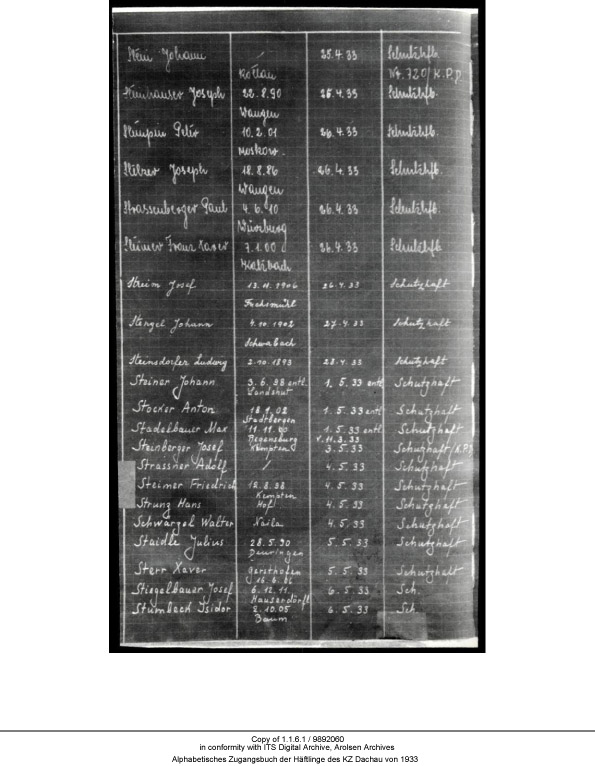 Johann / 25.4.33 Schutzhft.
Köttau Nr. 720/K.P.D.
Steinhauser Joseph 22.8.90 26.4.33 Schutzhft.
Wangen
Peter 10.2.01 26.4.33 Schutzhft.
Moskow.
Stelzer Joseph 18.8.86 26.4.33 Schutzhft.
Wangen
Strassenberger Paul 4.6.10 26.4.33 Schutzhft.
Würzburg
Steiner Franz Xaver 7.1.00 26.4.33 Schutzhft.
Streim Josef 13.11.1906 26.4.33 Schutzhaft
Fuchsmühl
Stengel Johann 4.10.1902 27.4.33 Schutzhaft
Schwabach
Steinsdorfer Ludwig 2.10.1893 28.4.33 Schutzhaft
Steiner Johann 3.6.98 entl. 1.5.33 entl Schutzhaft
Landshut
Stocker Anton 18.1.02 1.5.33 entl Schutzhaft
Stadtbergen
Stadelbauer Max 11.11.00 1.5.33 entl Schutzhaft
Regensburg v. 11.3.33
Steinberger Josef Kempten 3.5.33 Schutzhaft/K.P.D
Strassner Adolf / 4.5.33 Schutzhaft
Steimer Friedrich 12.8.98 4.5.33 Schutzhaft
Kempten
Strung Hans Hof 4.5.33 Schutzhaft
Schwärgel Walter Naila 4.5.33 Schutzhaft
Staidle Julius 28.5.90 5.5.33 Schutzhaft
Deuringen
Sterr Xaver Gersthofen 5.5.33 Schutzhaft
16.6.06
Stiegelbauer Josef 6.12.11. 6.5.33 Sch.
Hauserdörfl
Stumbeck Isidor 2.10.05 6.5.33 Sch.
Baum
Copy of 1.1.6.1 / 9892060
in conformity with ITS Digital Archive, Arolsen Archives
Alphabetisches Zugangsbuch der Häftlinge des KZ Dachau von 1933